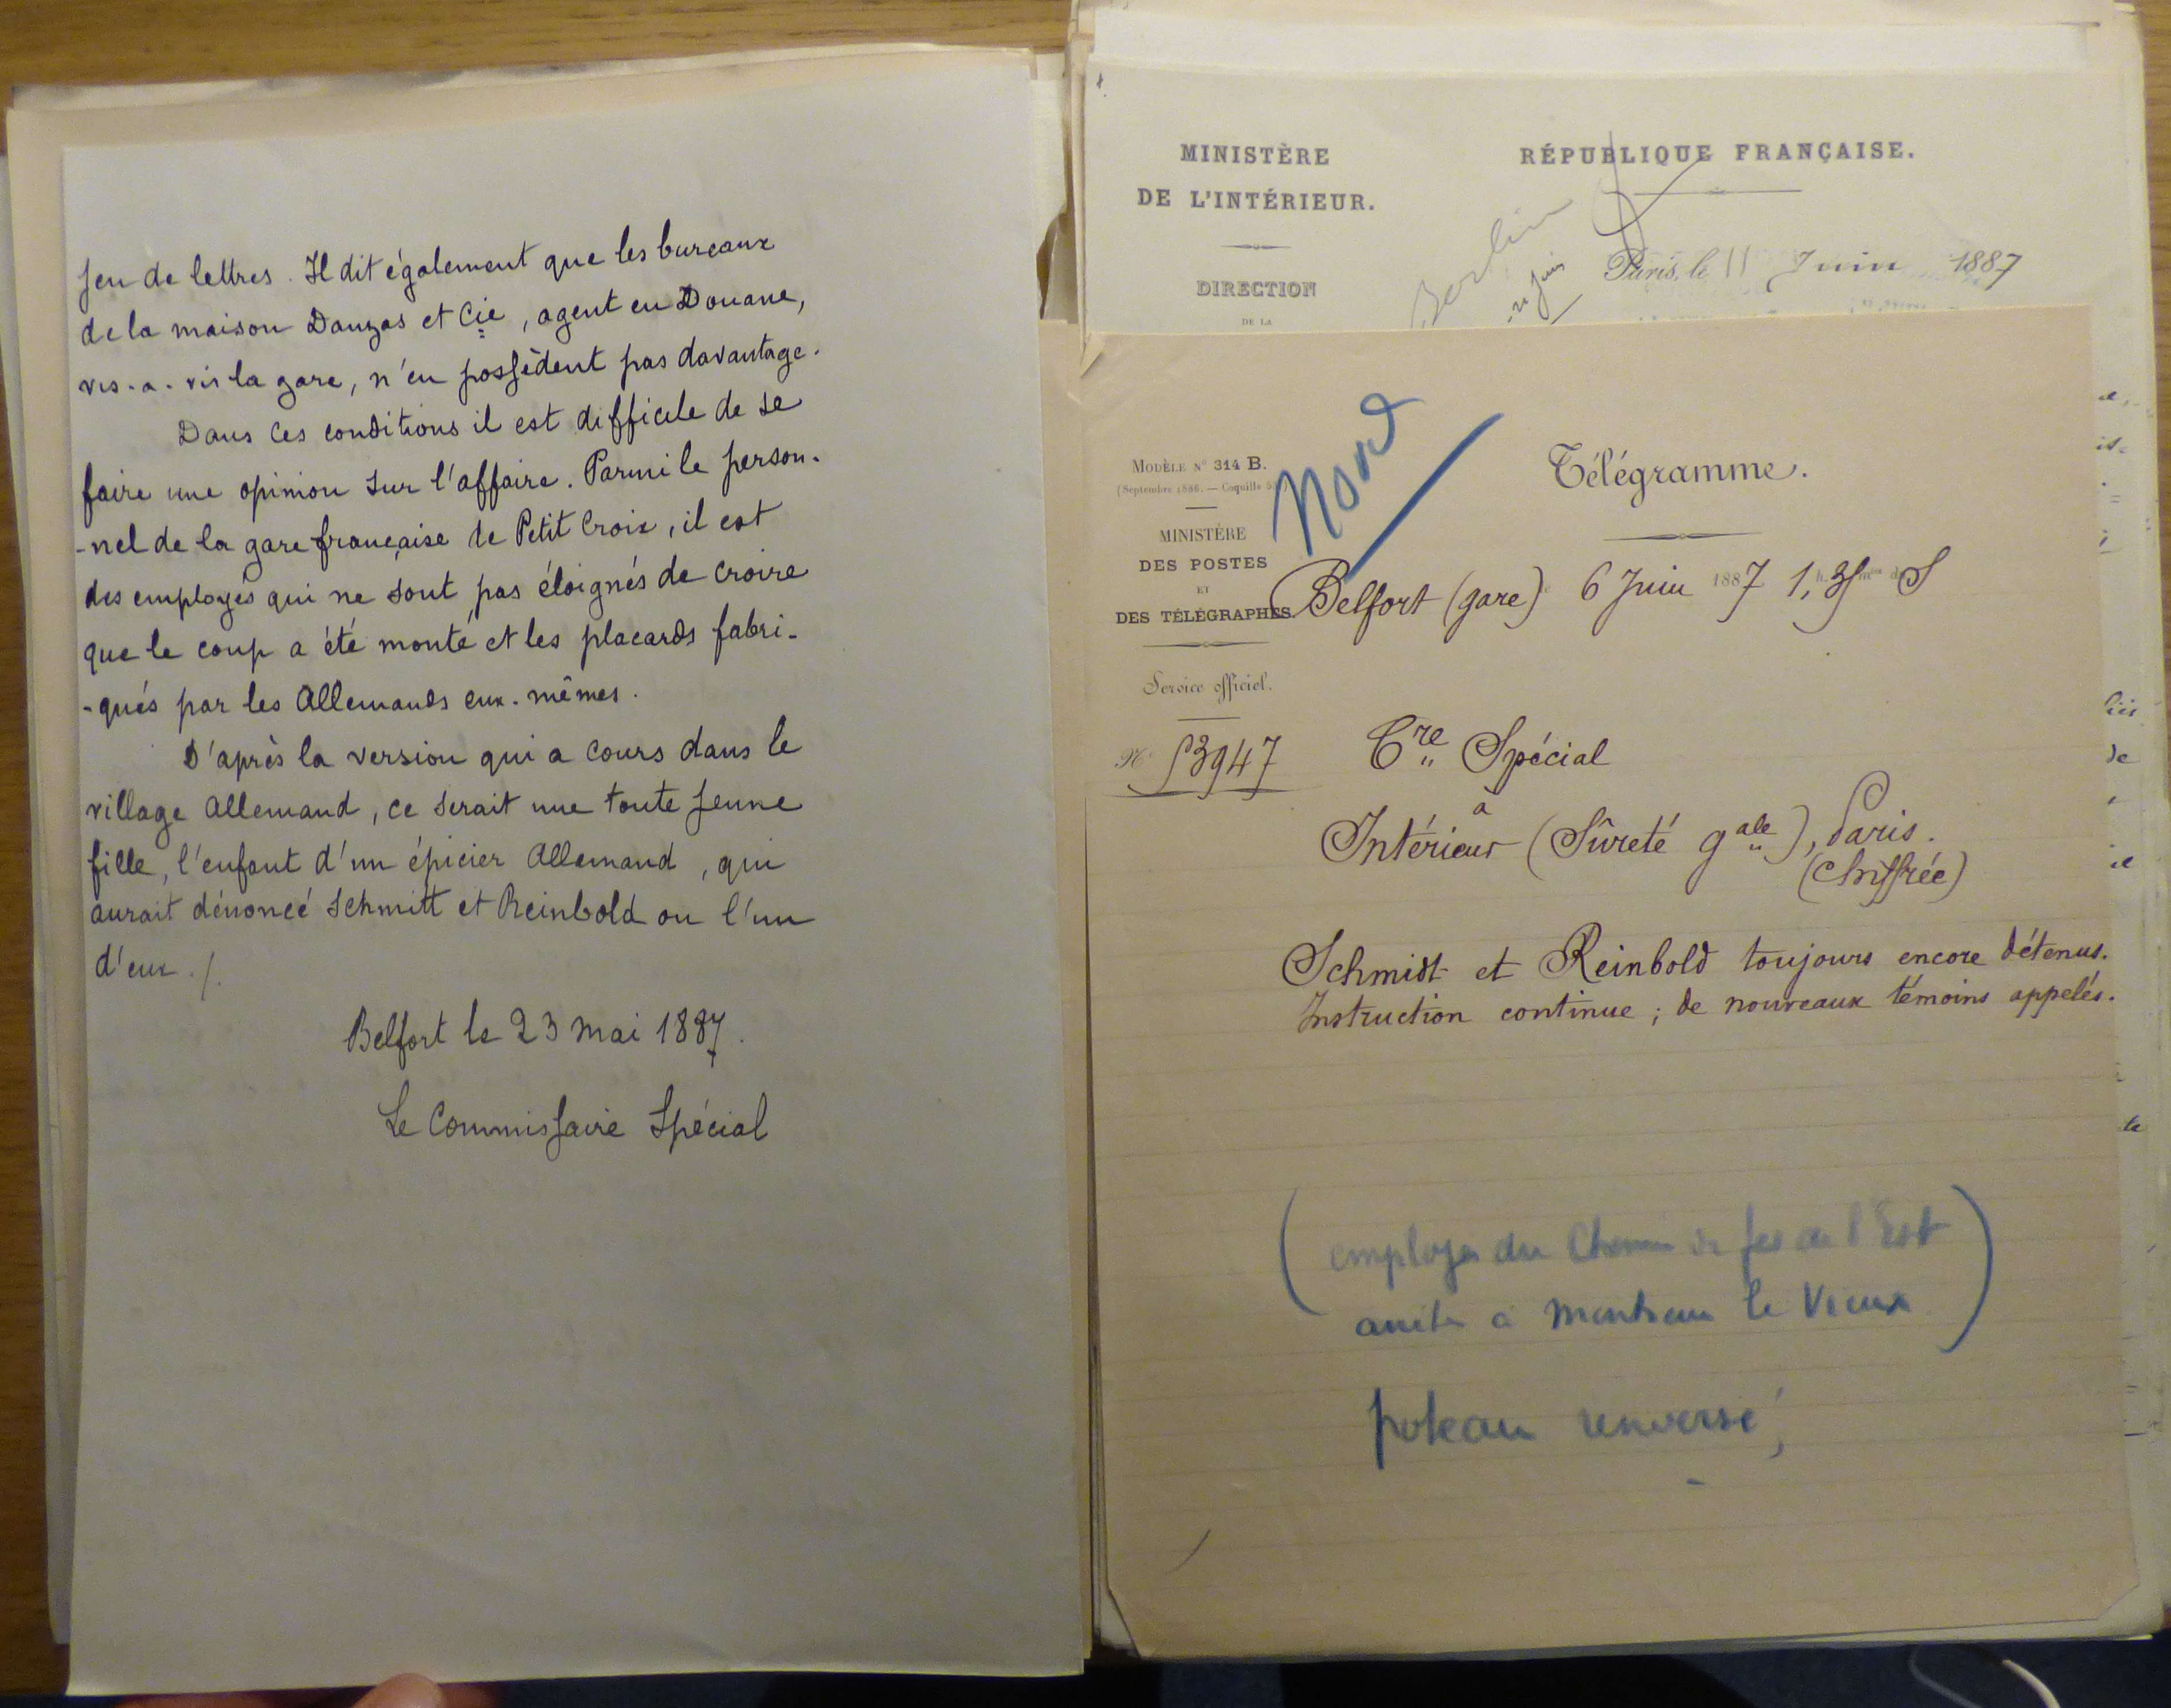 jeu de lettres. Il dit également que les bureaux
de la maison Danzas et Cie, agent en Douane,
vis-a-vis la gare, n'en possèdent pas davantage.
Dans ces conditions il est difficile de se
faire une opinion sur l'affaire. Parmi le person-
-nel de la gare française de Petit Croix, il est
des employés qui ne sont pas éloignés de croire
que le coup a été monté et les placards fabri-
-qués par les Allemands eux-mêmes.
D'après la version qui a cours dans le
village Allemand, ce serait une toute jeune
fille, l'enfant d'un épicier Allemand, qui
aurait dénoncé Schmitt et Reinbold ou l'un
d'eux./.
Belfort le 23 Mai 1887.
Le Commissaire Spécial
MINISTÈRE
DE L'INTÉRIEUR.
DIRECTION
DE LA
RÉPUBLIQUE FRANÇAISE.
Paris, le 11 Juin 1887
Nord
MODÈLE N° 314 B.
(Septembre 1886. — Coquille
MINISTÈRE
DES POSTES
ET
DES TÉLÉGRAPHES.
Service officiel.
N° 53947
Télégramme.
Belfort (gare) 6 Juin 1887 1h, 35 S
Cre Spécial
à
Intérieur (Sûreté gale), Paris.
(Chiffrée)
Schmidt et Reinbold toujours encore détenus.
Instruction continue; de nouveaux témoins appelés.
(employés du Chemin de fer de l'Est
à Montreux le Vieux)
poteau renversé,